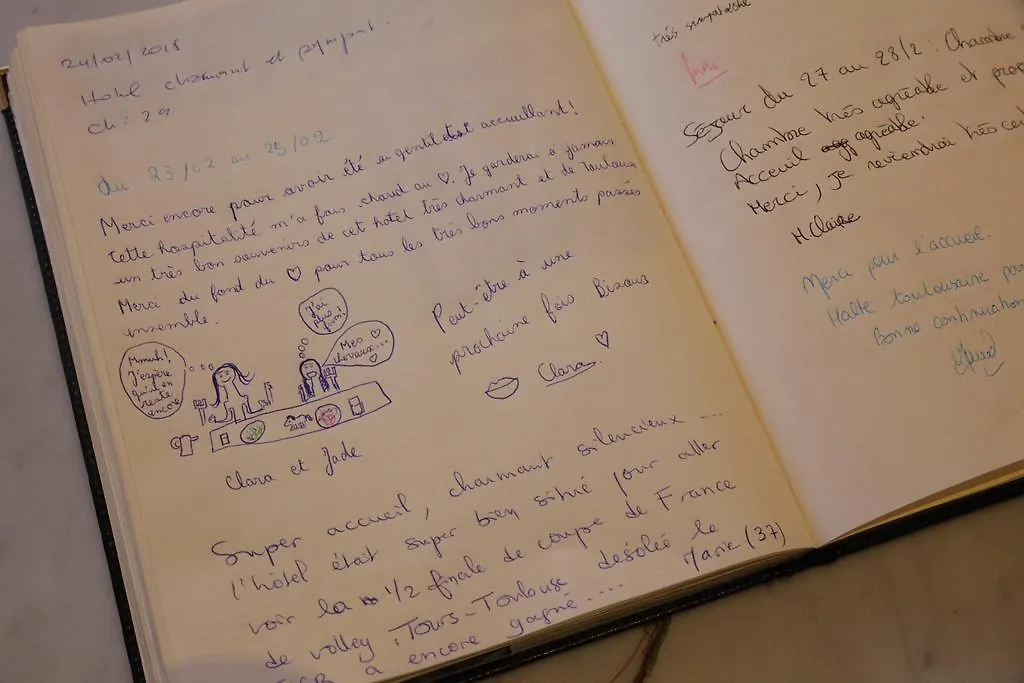 24/02/2018
Hotel charmant et sympat.
Ch: 29
Du 23/02 au 25/02
Merci encore pour avoir été si gentil et accueillant!
Cette hospitalité m'a fais chaud au ♡. Je garderai à jamais
un très bon souvenirs de cet hotel très charmant et de Toulouse
Merci du fond du ♡ pour tous les très bons moments passés
ensemble.
J'ai plus faim!
Mmuh! J'espère qu'il en reste encore
Mes cheveux... ♡
Clara et Jade
Peut-être à une
prochaine fois Bisous
Clara ♡
Super accueil, charmant silencieux ....
l'hôtel était super bien situé pour aller
voir la 1/2 finale de coupe de France
de volley : Tours-Toulouse désolée le
à encore gagné.... Marie (37)
très sympathique
Séjour du 27 au 28/2 : Chambre
Chambre très agréable et
Acceuil agréable.
Merci, je reviendrai très
M Claire
Merci pour l'accueil.
Halte toulousaine
Bonne continuation